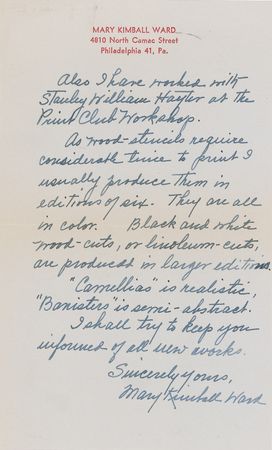 MARY KIMBALL WARD
4810 North Camac Street
Philadelphia 41, Pa.
Also I have worked with
Stanley William Hayter at the
Print Club Workshop.
As wood-stencils require
considerable time to print I
usually produce them in
editions of six. They are all
in color. Black and white
wood-cuts, or linoleum-cuts,
are produced in larger editions.
"Camellias" is realistic,
"Banisters" is semi-abstract.
I shall try to keep you
informed of all new works.
Sincerely yours,
Mary Kimball Ward